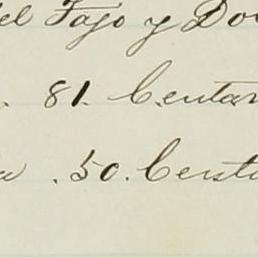 el Fajo y Do
. 81. Centav
a . 50. Centa